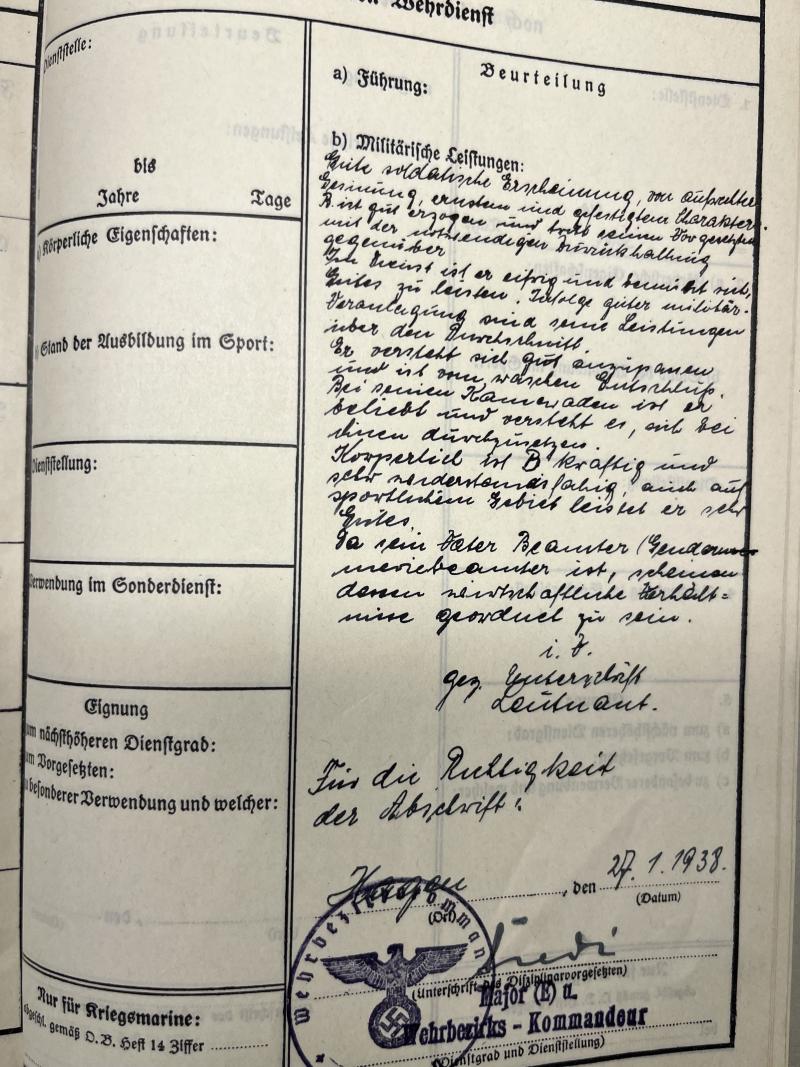 Wehrdienst
Dienststelle:
bis
Jahre Tage
Körperliche Eigenschaften:
Stand der Ausbildung im Sport:
Dienststellung:
Verwendung im Sonderdienst:
Eignung
zum nächsthöheren Dienstgrad:
zum Vorgesetzten:
zu besonderer Verwendung und welcher:
Nur für Kriegsmarine:
gemäß O.B. Heft 14 Ziffer
Beurteilung
a) Führung:
b) Militärische Leistungen:
Gute soldatische Erscheinung, von aufrechter
Gesinnung, ernstem und gefestigtem Charakter.
B. ist gut erzogen und seinen Vorgesetzten
mit der notwendigen Zurückhaltung
gegenüber
Im Dienst ist er eifrig und bemüht sich,
Gutes zu leisten. Infolge guter militär.
Veranlagung sind seine Leistungen
über den Durchschnitt.
Er versteht sich gut anzupassen
und ist von raschem Entschluß.
Bei seinen Kameraden ist er
beliebt und versteht es, sich bei
ihnen durchzusetzen.
Körperlich ist B kräftig und
sehr widerstandsfähig, auch auf
sportlichem Gebiet leistet er sehr
Gutes.
Da sein Vater Beamter (Gendar
meriebeamter ist, scheinen
dessen wirtschaftliche Verhält=
nisse geordnet zu sein.
i. V.
gez. Unterschrift
Leutnant.
Für die Richtigkeit
der Abschrift:
, den 27.1.1938.
(Ort) (Datum)
(Unterschrift des Disziplinarvorgesetzten)
Major (E) u.
Wehrbezirks-Kommandeur
(Dienstgrad und Dienststellung)
Wehrbezirkskomman